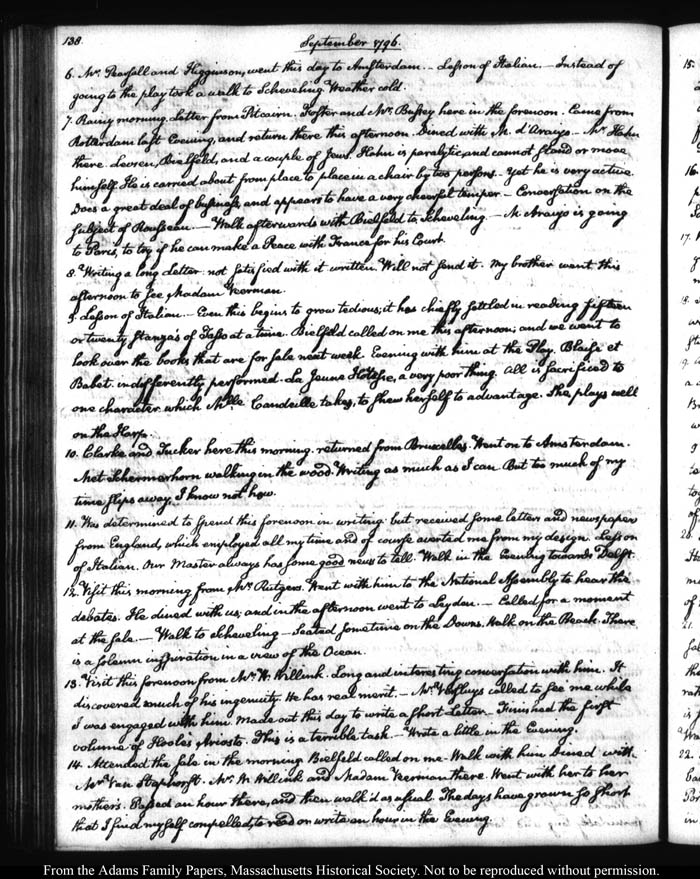 138.
September 1796.
6. Mr. Pearsall and Higginson, went this day to Amsterdam. — Lesson of Italian. — Instead of
going to the play took a walk to Scheveling. Weather cold.
7. Rainy morning. Letter from Pitcairn. Foster and Mr. Bussey here in the forenoon. Came from
Rotterdam last Evening, and return there this afternoon. Dined with M. d'Araujo. — Mr. Hahn
there. Levsen, Bielfeld, and a couple of Jews. Hahn is paralytic and cannot stand or move
himself. He is carried about from place to place in a chair by two persons. Yet he is very active.
Does a great deal of business, and appears to have a very cheerful temper. — Conversation on the
subject of Rousseau. — Walk afterwards with Bielfeld to Scheveling. — M. Araujo is going
to Paris, to try if he can make a Peace with France for his Court.
8. Writing a long letter: not satisfied with it written. Will not send it. My brother went this
afternoon to see Madam Veerman.
9. Lesson of Italian. — Even this begins to grow tedious; it has chiefly settled in reading fifteen
or twenty stanza's of Tasso at a time. Bielfeld called on me this afternoon; and we went to
look over the books that are for sale next week. Evening with him at the Play. Blaise et
Babet. indifferently performed. La Jeune Hôtesse, a very poor thing. All is sacrificed to
one character which Mlle Candeille takes, to shew herself to advantage. She plays well
on the Harp.
10. Clarke and Tucker here this morning. returned from Bruxelles. Went on to Amsterdam.
Met Schermerhorn walking in the wood. Writing as much as I can. But too much of my
time slips away, I know not how.
11. Was determined to spend this forenoon in writing: but received some letters and newspapers
from England, which employed all my time and of course averted me from my design. Lesson
of Italian. Our Master always has some good news to tell. Walk in the Evening towards Delft.
12. Visit this morning from Mr. Rutgers. Went with him to the National Assembly to hear the
debates. He dined with us; and in the afternoon went to Leyden. — Called for a moment
at the sale. — Walk to Scheveling — Seated sometime on the Downs. Walk on the Beach. There
is a solemn inspiration in a view of the Ocean.
13. Visit this forenoon from Mr. W. Willink. Long and interesting conversation with him. It
discovered much of his ingenuity. He has real merit. — Mr. called to see me while
I was engaged with him. Made out this day to write a short Letter. Finished the first
volume of Hoole's Ariosto. This is a terrible task. — Wrote a little in the Evening.
14. Attended the sale in the morning. Bielfeld called on me. Walk with him. Dined with
Mr. Van Staphorst. Mr. W. Willink and Madam Veerman there. Went with her to her
mother's. Passed an hour there, and then walk'd as usual. The days have grown so short
that I find myself compelled, to read or write an hour in the Evening.
From the Adams Family Papers, Massachusetts Historical Society. Not to be reproduced without permission.